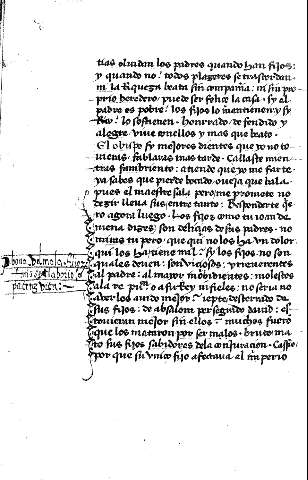 tias oluidan los padres quando han fijos:
y quando no: todos plazeres se trastornan
ni la Riqueza beata sin compañia: ni sin pro
prio heredero puede ser felice la casa. sy el
padre es pobre: los fijos lo mantienen y sy
Rico: lo sostienen. honrrado de fendido y
alegre viue conellos y mas que beato.
El obispo sy mejores dientes que yo no to
uieras fablaras mas tarde. Callaste mien
tras fambriento: atiende que yo me farte
ya sabes que pierde bocado oueja que bala
pues el maestre sala pero me promete no
dezir llena su sentenciar turbe: Responderte quie
ro agora luego. Los fijos como tu ioan de
mena dizes son deligios de sus padres. no
mires tu pero que qui no los ha vn dolor
qui los ha tiene mil. sy los fijos no son
quales deuen: sordiuiciosos: yrreuerentes
al padre: al mayor inobidientes: molestos
al a rey infieles: no seria no
auer los mucho mejor: jepte desterrado de
sus fijos: de absalom perseguido dauid: es
touieran mejor sin ellos: muchos fueron
que los mataron por ser malos. bruto ma
to sus fijos sabidores dela conjuracion. Cassio
por que su vnico fijo afectaua el imperio